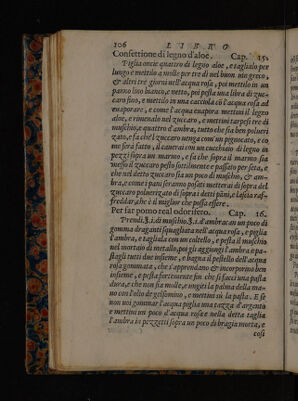 106 LIBRO
Confettione di legno d'aloe. Cap. 15.
Piglia oncie quattro di legno aloe, e taglialo per
lungo e mettilo a molle per tre dì nel buon vin greco,
& altri tre giorni nell'acqua rosa, poi mettelo in un
panno lino bianco, e netto, poi pesa una libra di zuc-
caro fino, e mettilo in una cacciola cõ l'acqua rosa ad
evaporare, e come l'acqua evapora mettivi il legno
aloe, e rimenalo nel zuccaro, e mettivi tarpesi tre di
muschio, e quattro d'ambra, tutto che sia ben polueri
zato, e fa che'l zuccaro uenga come
me sarà fatto, il cauerai con un cucchiaio di legno in
pezzi sopra un marmo, e fa che sopra il marmo sia
messo il zuccaro pesto sottilmente e passato per seta, e
che nel detto zuccaro sia un poco di muschio, & am-
bra, e come i pani saranno posati metterai di sopra del
zuccaro poluerizato di sopra i detti pani, e lascia raf-
freddar, che è il miglior che possa essere.
Per far pomo real odorifero. Cap. 16.
Prendi di muschio, d'ambracan un poco di
gomma draganti squagliata nell'acqua rosa, e piglia
l'ambra, e tagliala con un coltello, e pesta il muschio
nel mortaio di metallo, poi gli aggiungi l'ambra e pa-
stagli tutti due insieme, e bagna il pestello dell'acqua
rosa gommata, che s'apprendano & incorporino ben
insieme, e pesta fortemente fin che si facci una pasta
dura, e che non sia molle, e ungiti la palma della ma-
no con l'olio de gelsomino, e mettivi sù la pasta. E se
non uoi gommar l'acqua piglia una tazza d'argento
e mettivi un poco d'acqua rosa e nella detta taglia
l'ambra in pezzetti sopra un poco di bragia morta, e
così